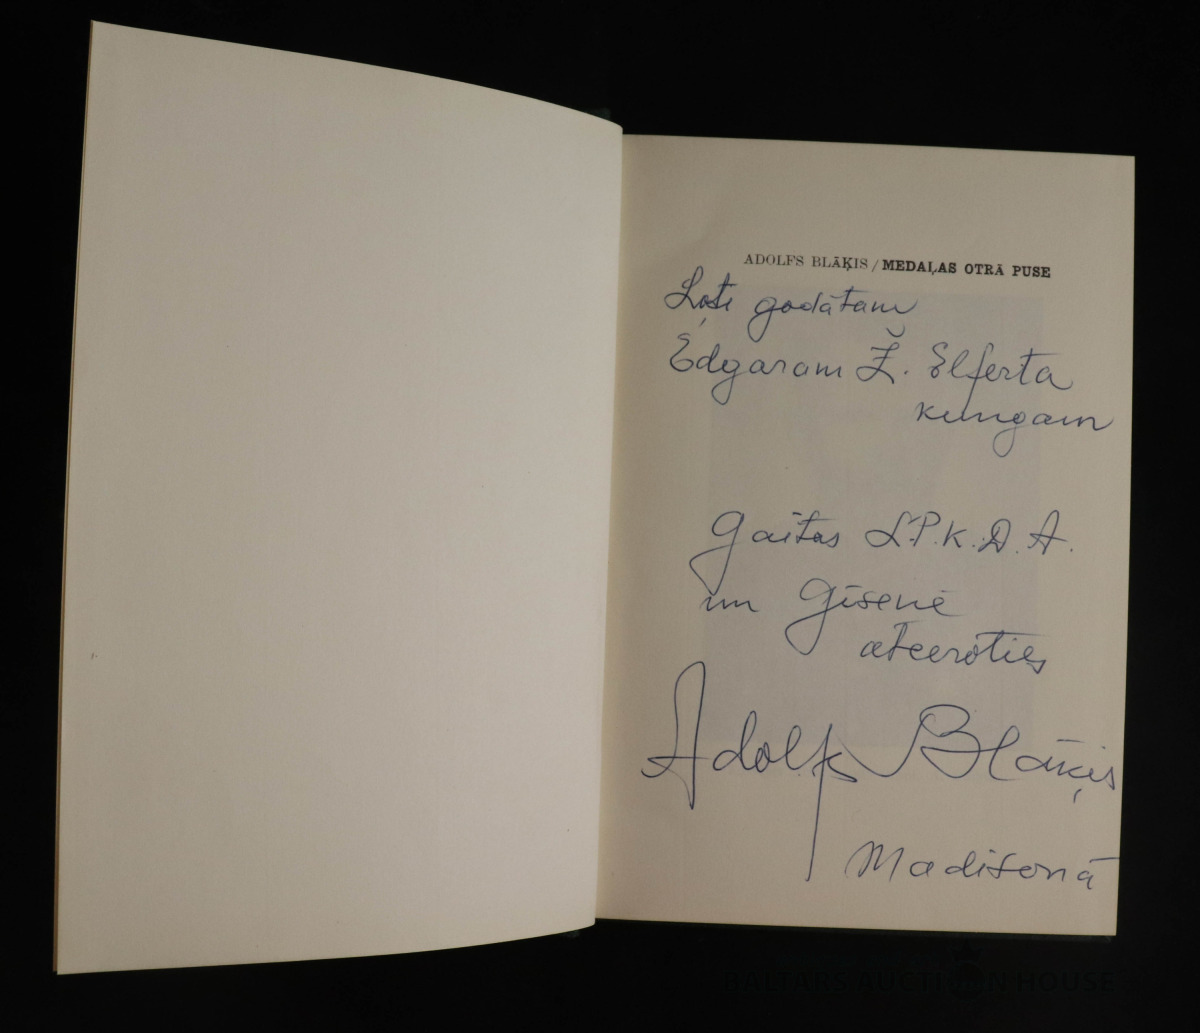 ADOLFS BLĀĶIS / MEDAĻAS OTRĀ PUSE
Ļoti godātam
Edgaram Ž. Elferta
kungam
Gaitas L.P.K.D.A.
un Gīsenē
atceroties
Adolfs Blāķis
Madisonā
BALTARS AUCTION HOUSE